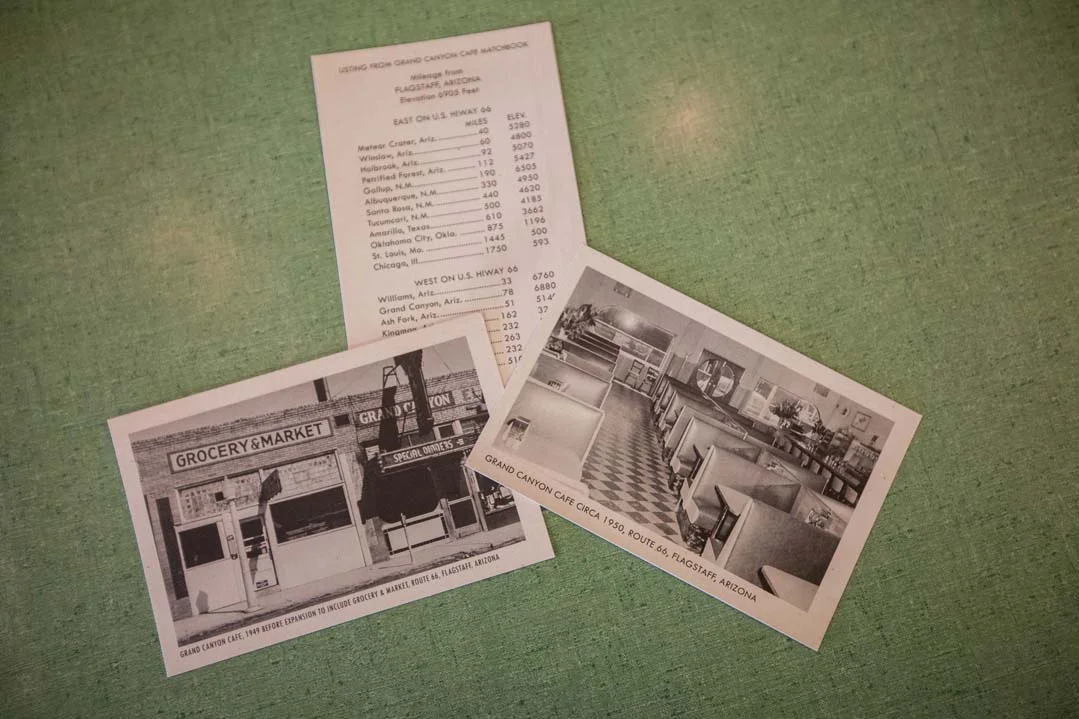 LISTING FROM GRAND CANYON CAFE MATCHBOOK
Mileage from
FLAGSTAFF, ARIZONA
Elevation 6905 Feet
EAST ON U.S. HIWAY 66
MILES ELEV.
Meteor Crater, Ariz. 40 5280
Winslow, Ariz. 60 4800
Holbrook, Ariz. 92 5070
Petrified Forest, Ariz. 112 5427
Gallup, N.M. 190 6505
Albuquerque, N.M. 330 4950
Santa Rosa, N.M. 440 4620
Tucumcari, N.M. 500 4185
Amarillo, Texas 610 3662
Oklahoma City, Okla. 875 1196
St. Louis, Mo. 1445 500
Chicago, Ill. 1750 593
WEST ON U.S. HIWAY 66
Williams, Ariz. 33 6760
Grand Canyon, Ariz. 78 6880
Ash Fork, Ariz. 51 514
Kingman, 162 37
232
263
232
GROCERY & MARKET
GRAND CANYON
SPECIAL DINNERS
GRAND CANYON CAFE, 1949 BEFORE EXPANSION TO INCLUDE GROCERY & MARKET, ROUTE 66, FLAGSTAFF, ARIZONA
GRAND CANYON CAFE CIRCA 1950, ROUTE 66, FLAGSTAFF, ARIZONA